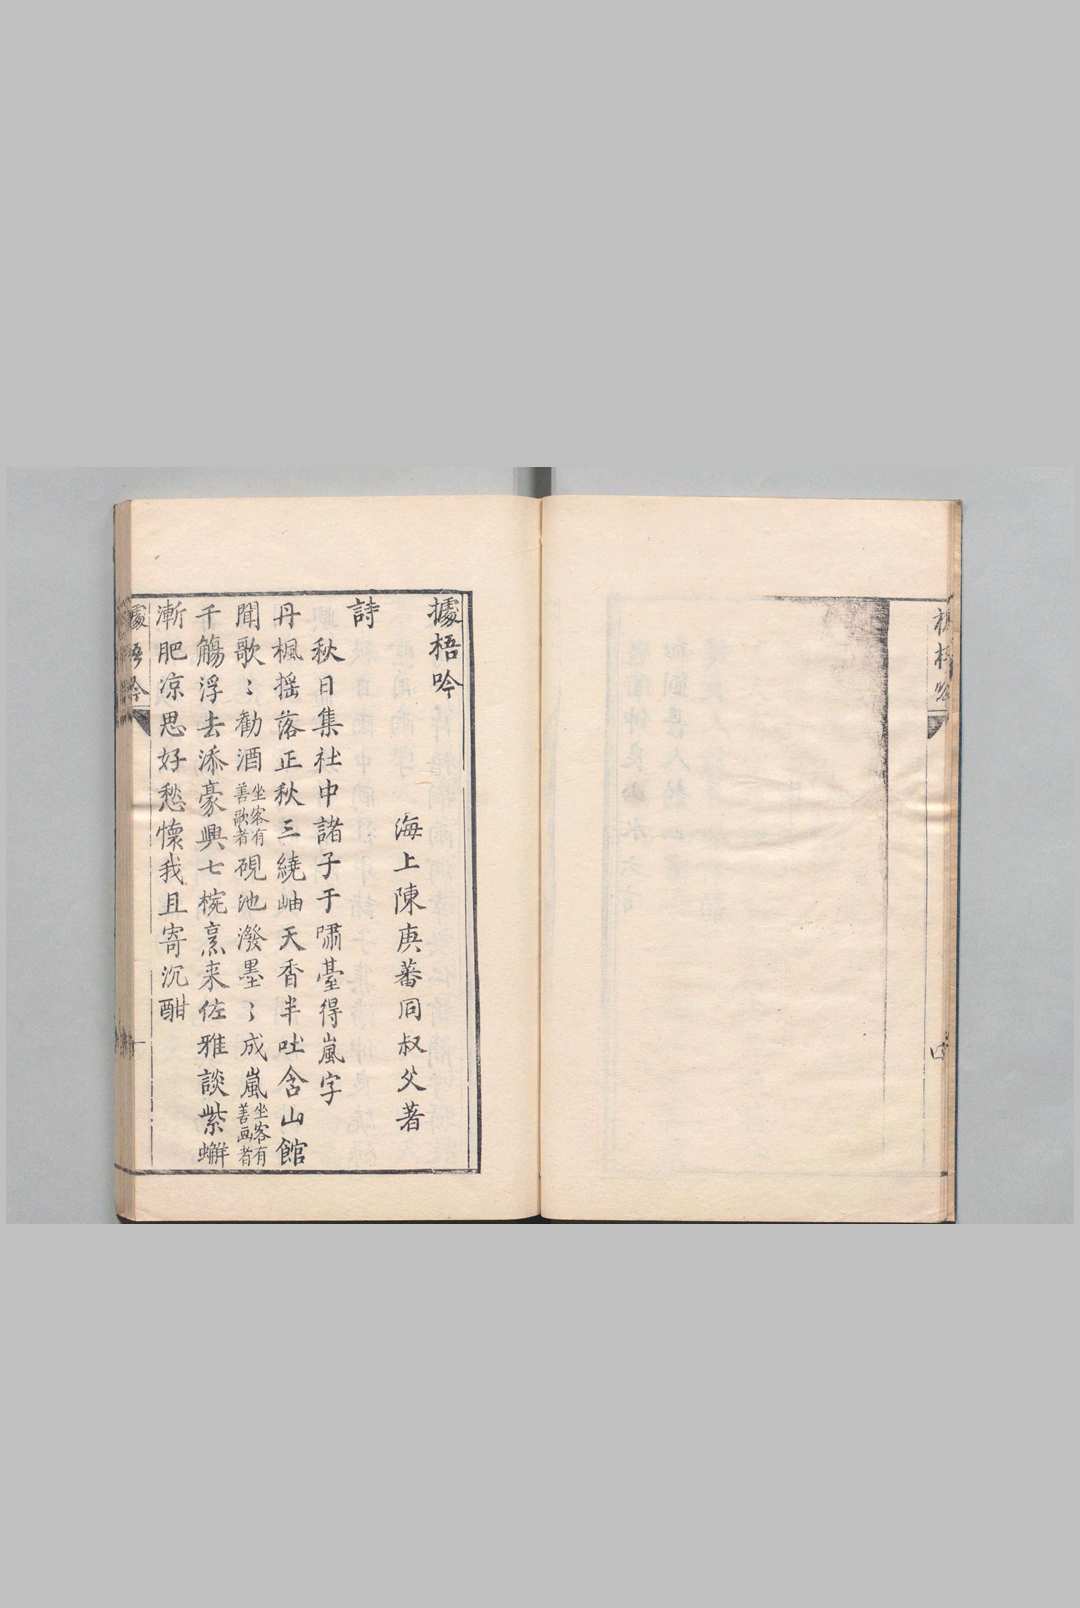 據梧吟
海上陳庚蕃同叔父著
詩
秋日集社中諸子于嘯臺得嵐字
丹楓揺落正秋三繞岫天香半吐含山館
聞歌〻勸酒坐客有善歌者硯池潑墨〻成嵐坐客有善画者
千觴浮去添豪興七椀烹来佐雅談紫蠏
漸肥凉思好愁懷我且寄沉酣
據梧吟